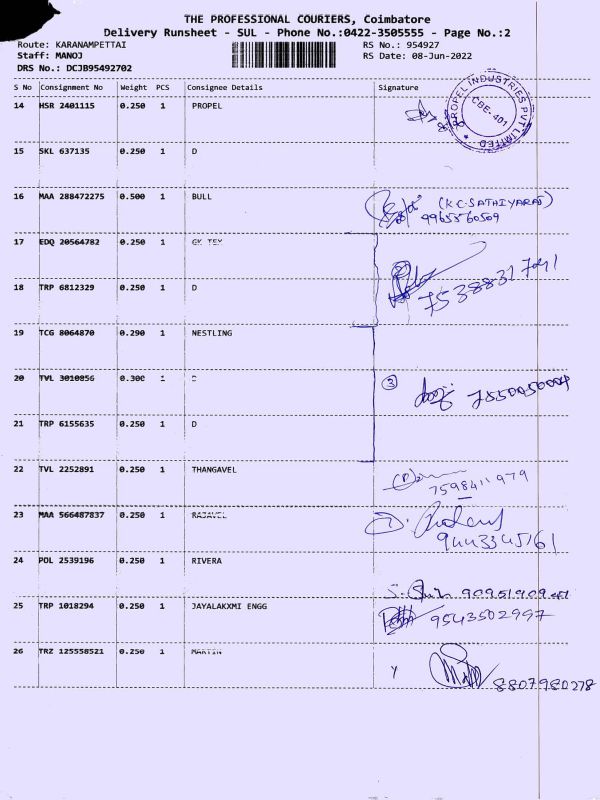 THE PROFESSIONAL COURIERS, Coimbatore
Delivery Runsheet - SUL - Phone No.:0422-3505555 - Page No.:2
Route: KARANAMPETTAI RS No.: 954927
Staff: MANOJ RS Date: 08-Jun-2022
DRS No.: DCJB95492702
S No Consignment No Weight PCS Consignee Details Signature
14 HSR 2401115 0.250 1 PROPEL
PROPEL INDUSTRIES PVT LIMITED
CBE-401
15 SKL 637135 0.250 1 D
16 MAA 288472275 0.500 1 BULL (K.C.SATHIYARAJ)
9965560509
17 EDQ 20564782 0.250 1 GK TEX
18 TRP 6812329 0.250 1 D
19 TCG 8064870 0.290 1 NESTLING
20 TVL 3010856 0.300 3
21 TRP 6155635 0.250 1 D
22 TVL 2252891 0.250 1 THANGAVEL
7598411979
23 MAA 566487837 0.250 1 RAJAVEL
9443345161
24 POL 2539196 0.250 1 RIVERA
25 TRP 1018294 0.250 1 JAYALAKXMI ENGG 9543502997
26 TRZ 125558521 0.250 1 MARTIN
8807980278